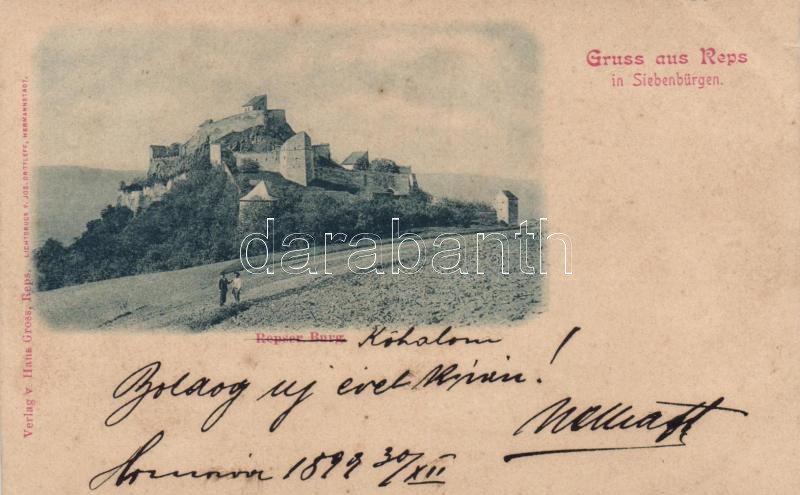 Gruss aus Reps
in Siebenbürgen.
Verlag v. Hans Gross, Reps.
LICHTDRUCK V. JOS. DROTLEFF, HERMANNSTADT.
darabanth
Repser Burg. Kőhalom!
Boldog uj évet kiván!
1899 30/XII